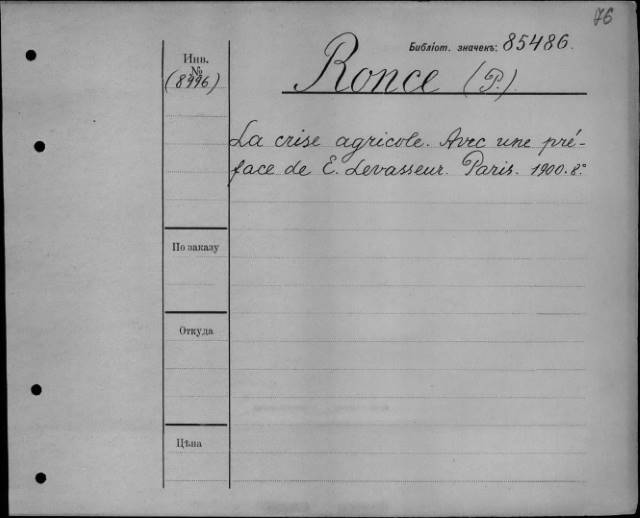 76
Библіот. значекъ: 85486.
Инв.
№
(8996)
Ronce (P.)
La crise agricole. Avec une pré-
face de E. Levasseur. Paris. 1900. 8°
По заказу
Откуда
Цѣна